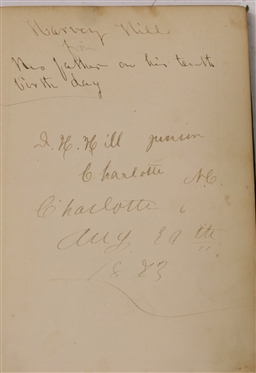 Harvey Hill
from
His father on his tenth
birth day
D. H. Hill junior
Charlotte N.C.
Charlotte
Aug 29th
1883